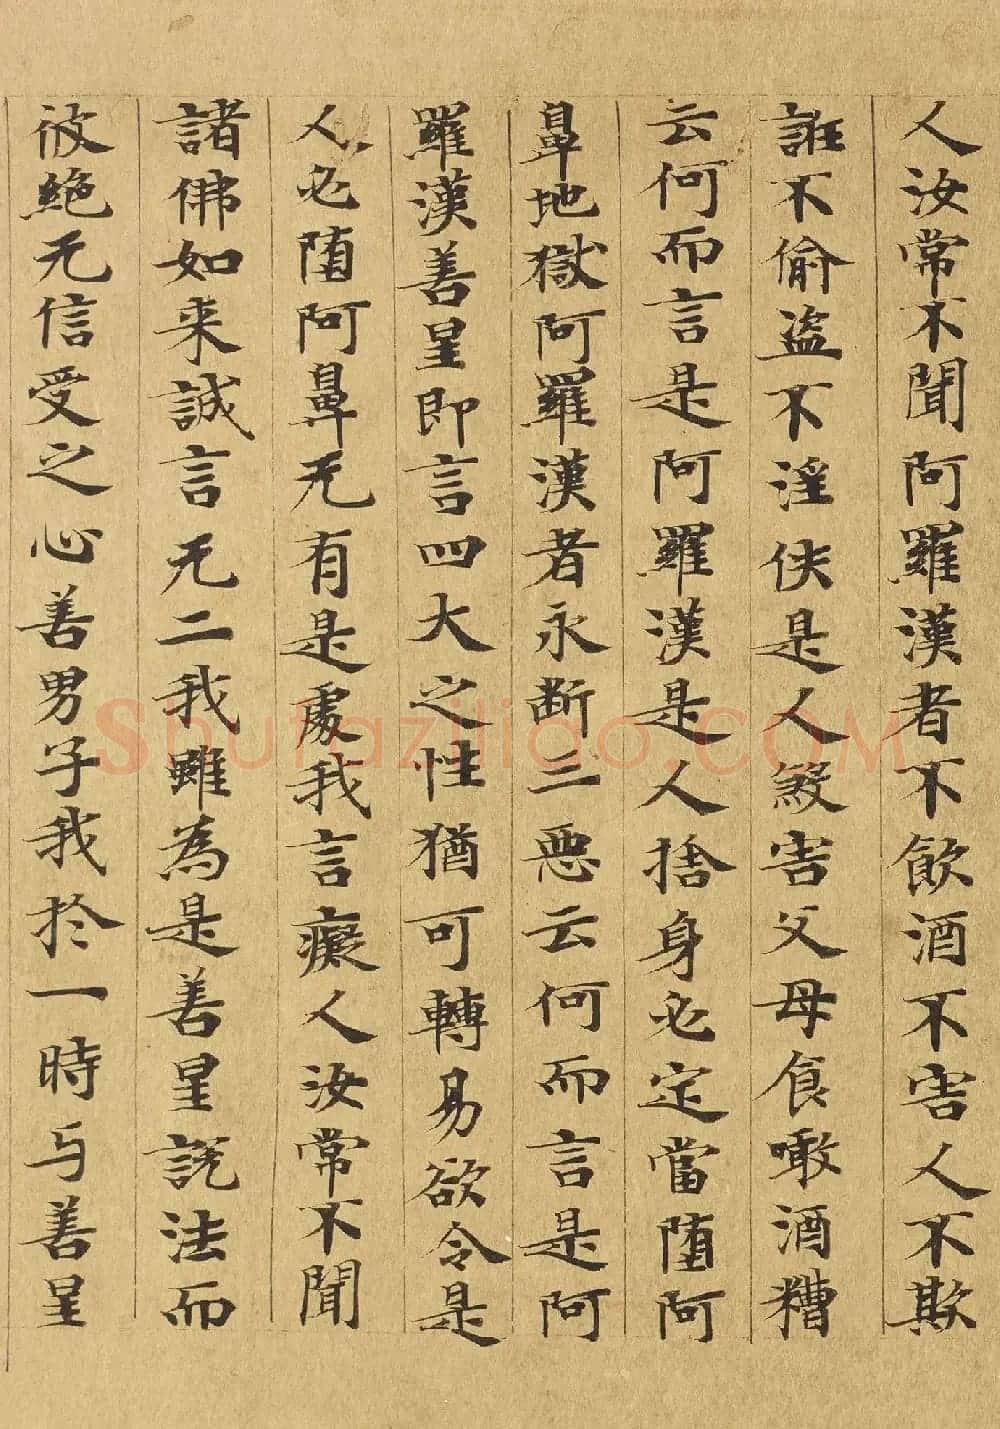 人汝常不聞阿羅漢者不飲酒不害人不欺
誑不偷盗不淫佚是人煞害父母食噉酒糟
云何而言是阿羅漢是人捨身必定當墮阿
鼻地獄阿羅漢者永断三惡云何而言是阿
羅漢善星即言四大之性猶可轉易欲令是
人必墮阿鼻无有是處我言癡人汝常不聞
諸佛如来誠言无二我雖為是善星説法而
彼絶无信受之心善男子我於一時与善星
Shufaziliao.COM